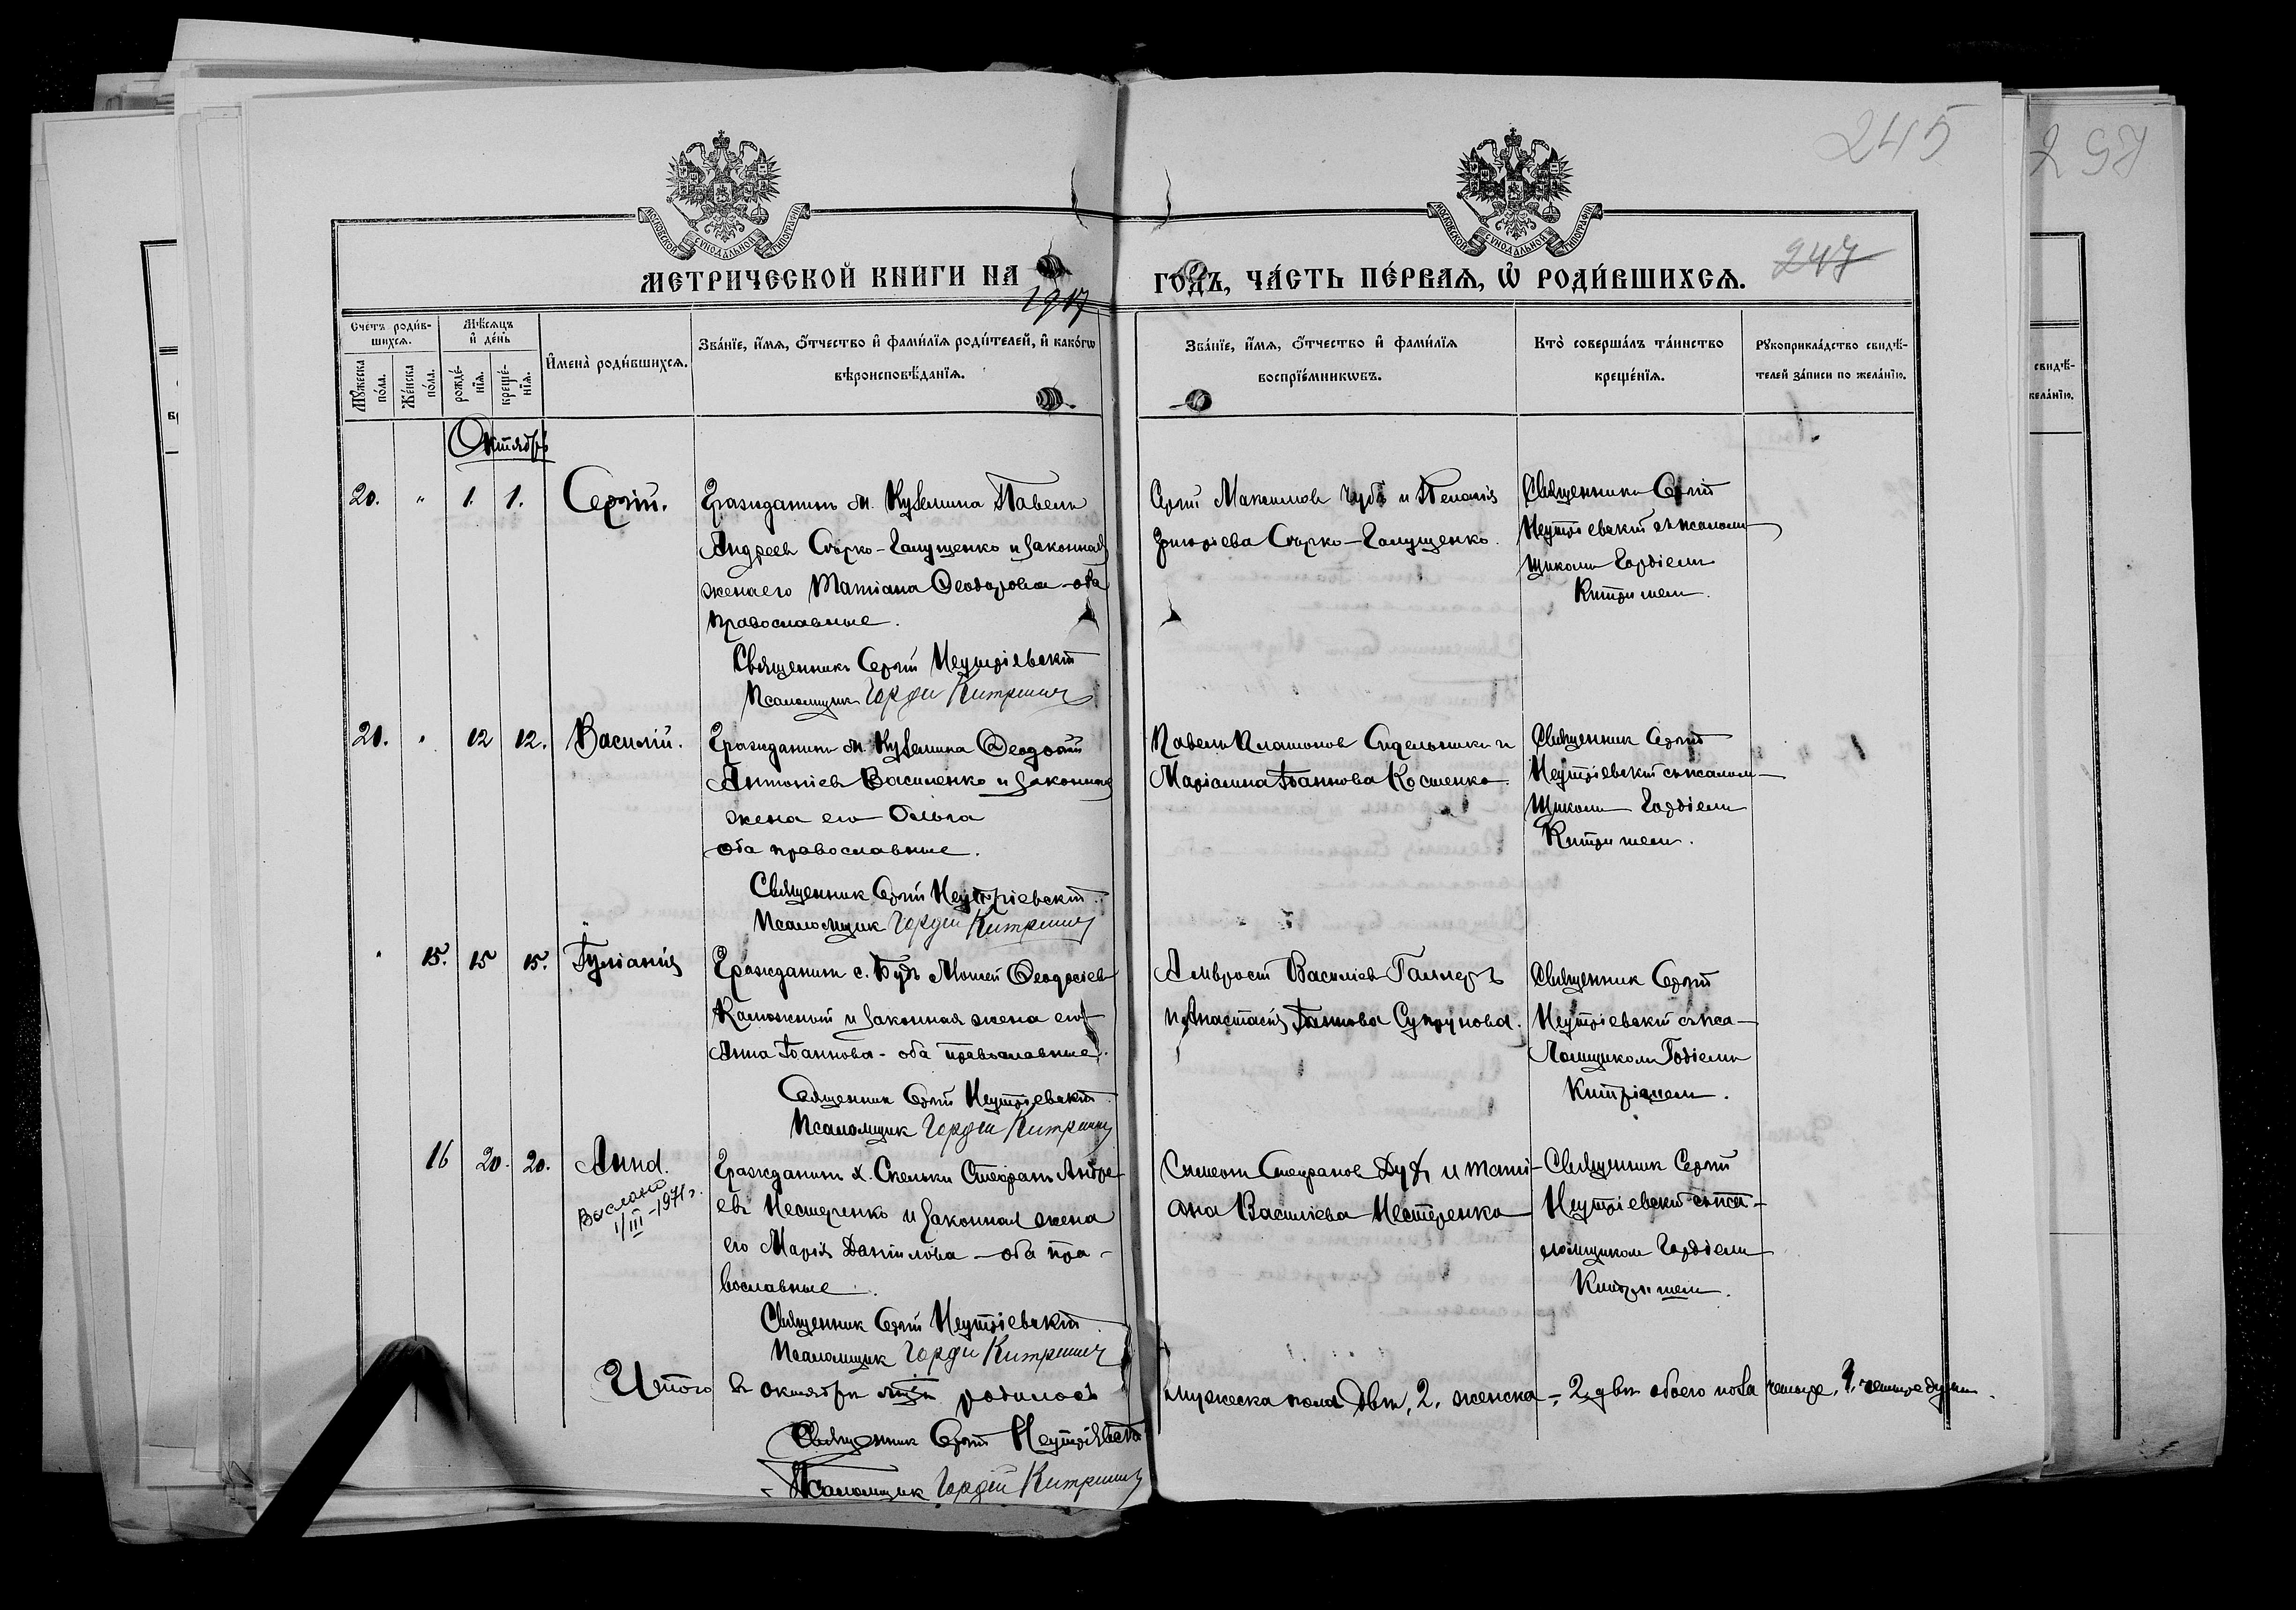 245
257
МОСКОВСКОЙ СѴНОДАЛЬНОЙ ТИПОГРАФІИ
МОСКОВСКОЙ СѴНОДАЛЬНОЙ ТИПОГРАФІИ
247
МЕТРИЧЕСКОЙ КНИГИ НА 1917 ГОДЪ, ЧА́СТЬ ПЕ́РВАѦ, Ѡ҆ РОДИ́ВШИХСѦ.
Сче́тъ роди́вшихсѧ.
Мꙋ́жеска по́ла.
Же́нска по́ла.
Мѣ́сѧцъ и҆ де́нь
рожде́нїѧ.
креще́нїѧ.
И҆мена̀ роди́вшихсѧ.
Зва́нїе, и҆́мѧ, ѻ҆́тчество и҆ фами́лїѧ роди́телей, и҆ како́гѡ
вѣроисповѣ́данїѧ.
Зва́нїе, и҆́мѧ, ѻ҆́тчество и҆ фами́лїѧ
воспрїе́мникѡвъ.
Кто̀ соверша́лъ та́инство
креще́нїѧ.
Рꙋкоприкла́дство свидѣ́-
телей за́писи по жела́нїю.
свидѣ́-
жела́нїю.
Октябрь
20. " 1. 1. Сергій.
Гражданинъ м. Куземина Павелъ
Андреевъ Сѣрко-Галущенко и законная
жена его Татіана Ѳеодорова - оба
православные.
Священникъ Сергій Неутріевскій
Псаломщикъ Гордій Китришъ
Сергій Максимовъ Чубъ и Пелагія
Григоріева Сѣрко-Галущенко.
Священникъ Сергій
Неутріевскій съ псалом-
щикомъ Гордіемъ
Китришемъ.
21. " 12 12. Василій.
Гражданинъ м. Куземина Ѳеодосій
Антоніевъ Василенко и законная
жена его Ольга
оба православные.
Священник Сергій Неутріевскій.
Псаломщик Гордій Китришъ
Павелъ Платоновъ Сидельникъ и
Маріанна Іоаннова Костенко.
Священник Сергій
Неутріевскій съ псалом-
щикомъ Гордіемъ
Китришемъ.
" 15. 15 15. Іуліанія
Гражданинъ с. Будъ Моисей Ѳеодосіевъ
и законная жена его
Анна Іоаннова - оба православные.
Священник Сергій Неутріевскій
Псаломщик Гордій Китришъ
Амвросій Василіевъ
и Анастасія Іоаннова Супрунова.
Священник Сергій
Неутріевскій съ пса-
ломщикомъ Гордіемъ
Китришемъ.
16 20. 20. Анна.
Выслано
1/III-1971 г.
Гражданинъ х. Скельки Стефанъ Андре-
евъ Нестеренко и законная жена
его Марія Даніилова - оба пра-
вославные.
Священник Сергій Неутріевскій.
Псаломщик Гордій Китришъ
Симеонъ Стефановъ и Тати-
ана Василіева Нестеренко
Священник Сергій
Неутріевскій съ пса-
ломщикомъ Гордіемъ
Китришемъ.
Итого въ октябрѣ мѣсѣ родилось мужеска пола двѣ, 2. женска - 2 двѣ обоего пола четыре, 4, четыре души.
Священник Сергій Неутріевскій
Псаломщик Гордій Китришъ